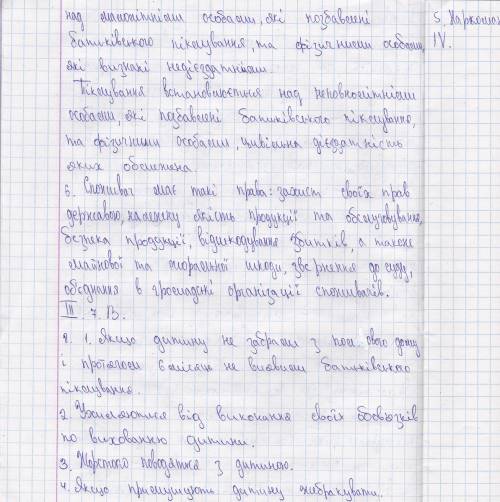 над малолітніми особами, які позбавлені
батьківського піклування, та фізичними особами,
які визнані недієздатними.
Піклування встановлюється над неповнолітніми
особами, які позбавлені батьківського піклування,
та фізичними особами, цивільна дієздатність
яких обмежена.
6. Споживач має такі права: захист своїх прав
державою, належну якість продукції та обслуговування,
безпека продукції, відшкодування збитків, а також
майнової та моральної шкоди, звернення до суду,
об'єднання в громадські організації споживачів.
III 7. В.
8. 1. Якщо дитину не забрали з пол. ового дому
і протягом 6 місяців не виявили батьківського
піклування.
2. Ухиляються від виконання своїх обов'язків
по вихованню дитини.
3. Жорстоко поводяться з дитиною.
4. Якщо примушують дитину жебракувати.
5. Наркоман
IV.